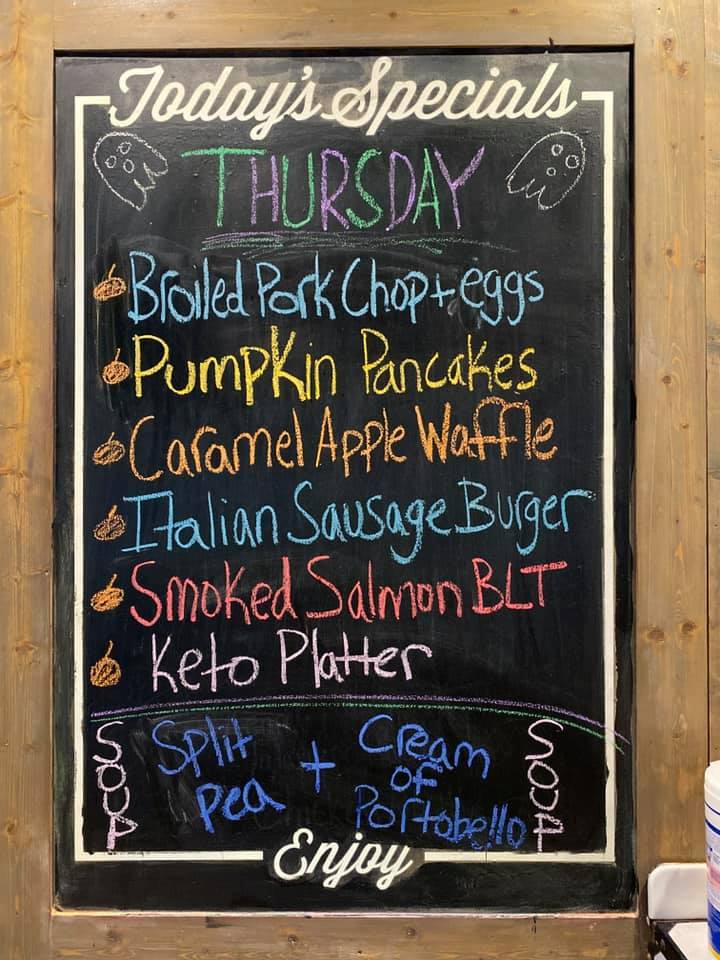 Today's Specials
THURSDAY
Broiled Pork Chop + eggs
Pumpkin Pancakes
Caramel Apple Waffle
Italian Sausage Burger
Smoked Salmon BLT
Keto Platter
SOUP
Split
pea
+
Cream
of
Portobello
SOUP
Enjoy